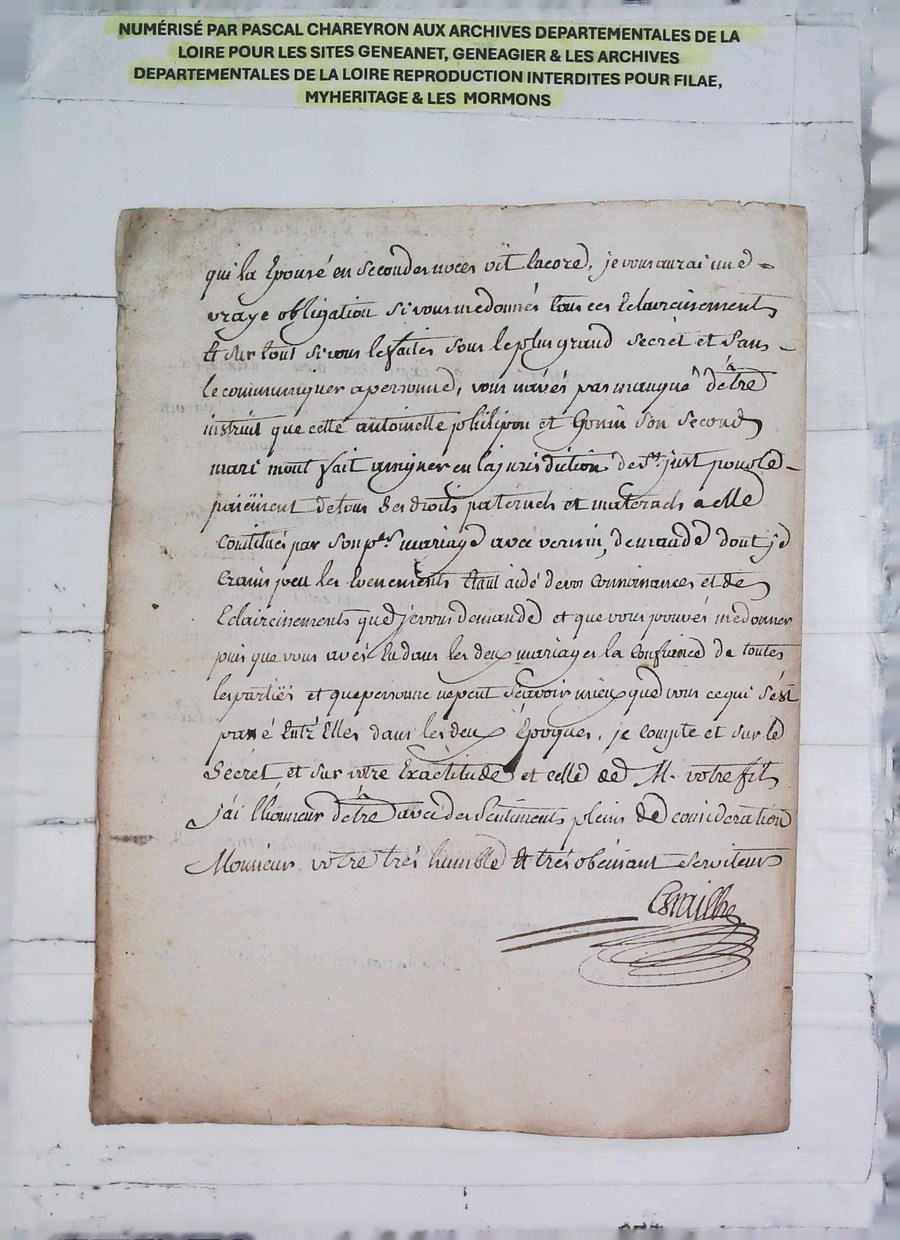 NUMÉRISÉ PAR PASCAL CHAREYRON AUX ARCHIVES DEPARTEMENTALES DE LA
LOIRE POUR LES SITES GENEANET, GENEAGIER & LES ARCHIVES
DEPARTEMENTALES DE LA LOIRE REPRODUCTION INTERDITES POUR FILAE,
MYHERITAGE & LES MORMONS
qui la Epousé en secondes noces vit Encore, je vous aurai une
vraye obligation si vous me donnés tous ces Eclaircissements
Et sur tout si vous le faites sous le plus grand secret et sans
le communiquer a personne, vous n'avés pas manqué d'être
instruit que cette antoinette philipon et Gonin son second
mari m'ont fait assigner en la jurisdiction de St. just pour le
paiëment de tous ses droits paternels et maternels a elle
Constitués par son pr. mariage avec vernin, demande dont je
Crains peu les Evenements Etant aidé de vos Connoissances et des
Eclaircissements que je vous demande et que vous pouvés me donner
puis que vous avés Eu dans les deux mariages la Confience de toutes
les partiës et que personne ne peut sçavoir mieux que vous ce qui s'est
passé Entr'Elles dans les deux Epoques, je compte et sur le
Secret et sur votre Exactitude et celle de M. votre fils
j'ai l'honneur d'être avec des sentiments pleins de consideration
Monsieur votre très humble Et très obeissant serviteur